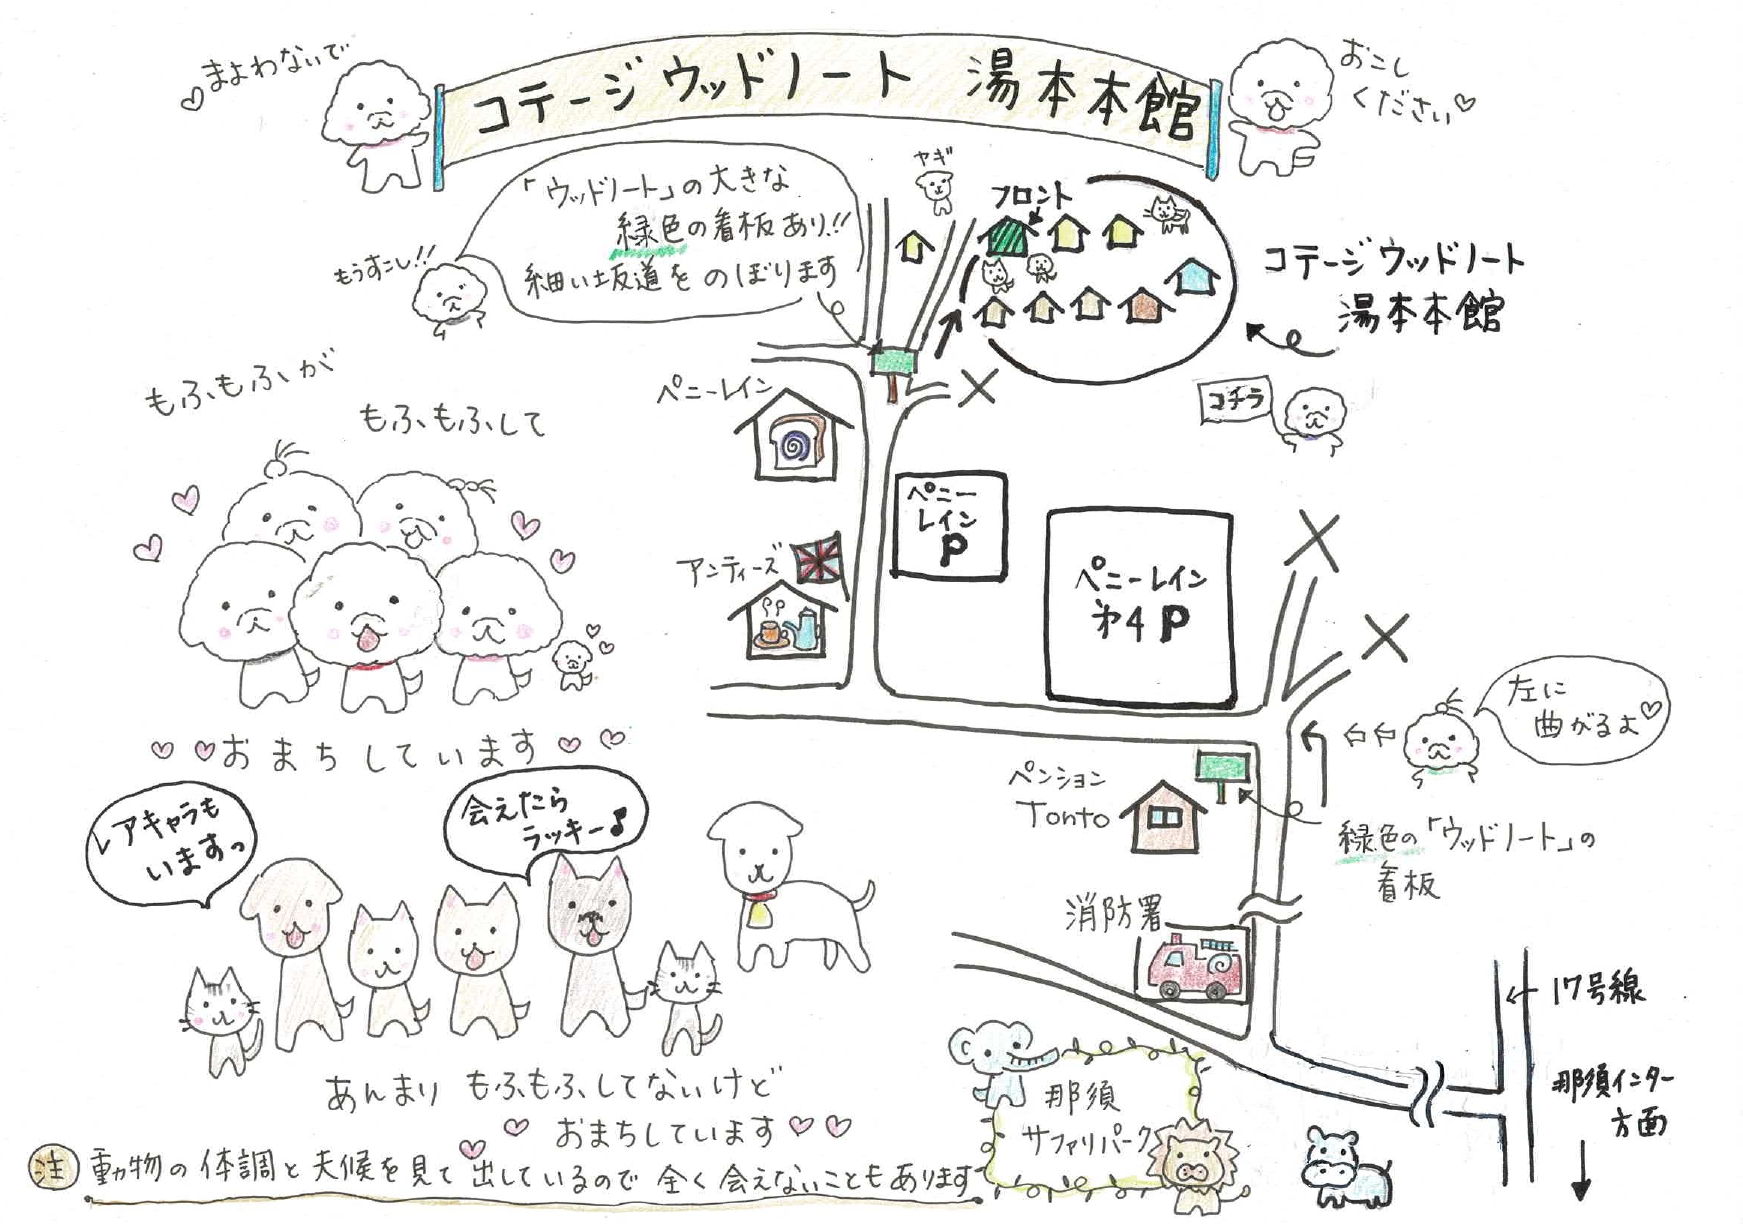 まよわないで
コテージ ウッドノート 湯本本館
おこし
ください
「ウッドノート」の大きな
緑色の看板あり!!
細い坂道を のぼります
もうすこし!!
ヤギ
フロント
コテージ ウッドノート
湯本本館
コチラ
もふもふが
もふもふして
おまちしています
ペニーレイン
アンティーズ
ペニー
レイン
P
ペニーレイン
第4 P
左に
曲がるよ
ペンション
Tonto
緑色の「ウッドノート」の
看板
消防署
レアキャラも
いますっ
会えたら
ラッキー♪
あんまり もふもふしてないけど
おまちしています
17号線
那須インター
方面
那須
サファリパーク
注 動物の体調と天候を見て出しているので全く会えないこともあります